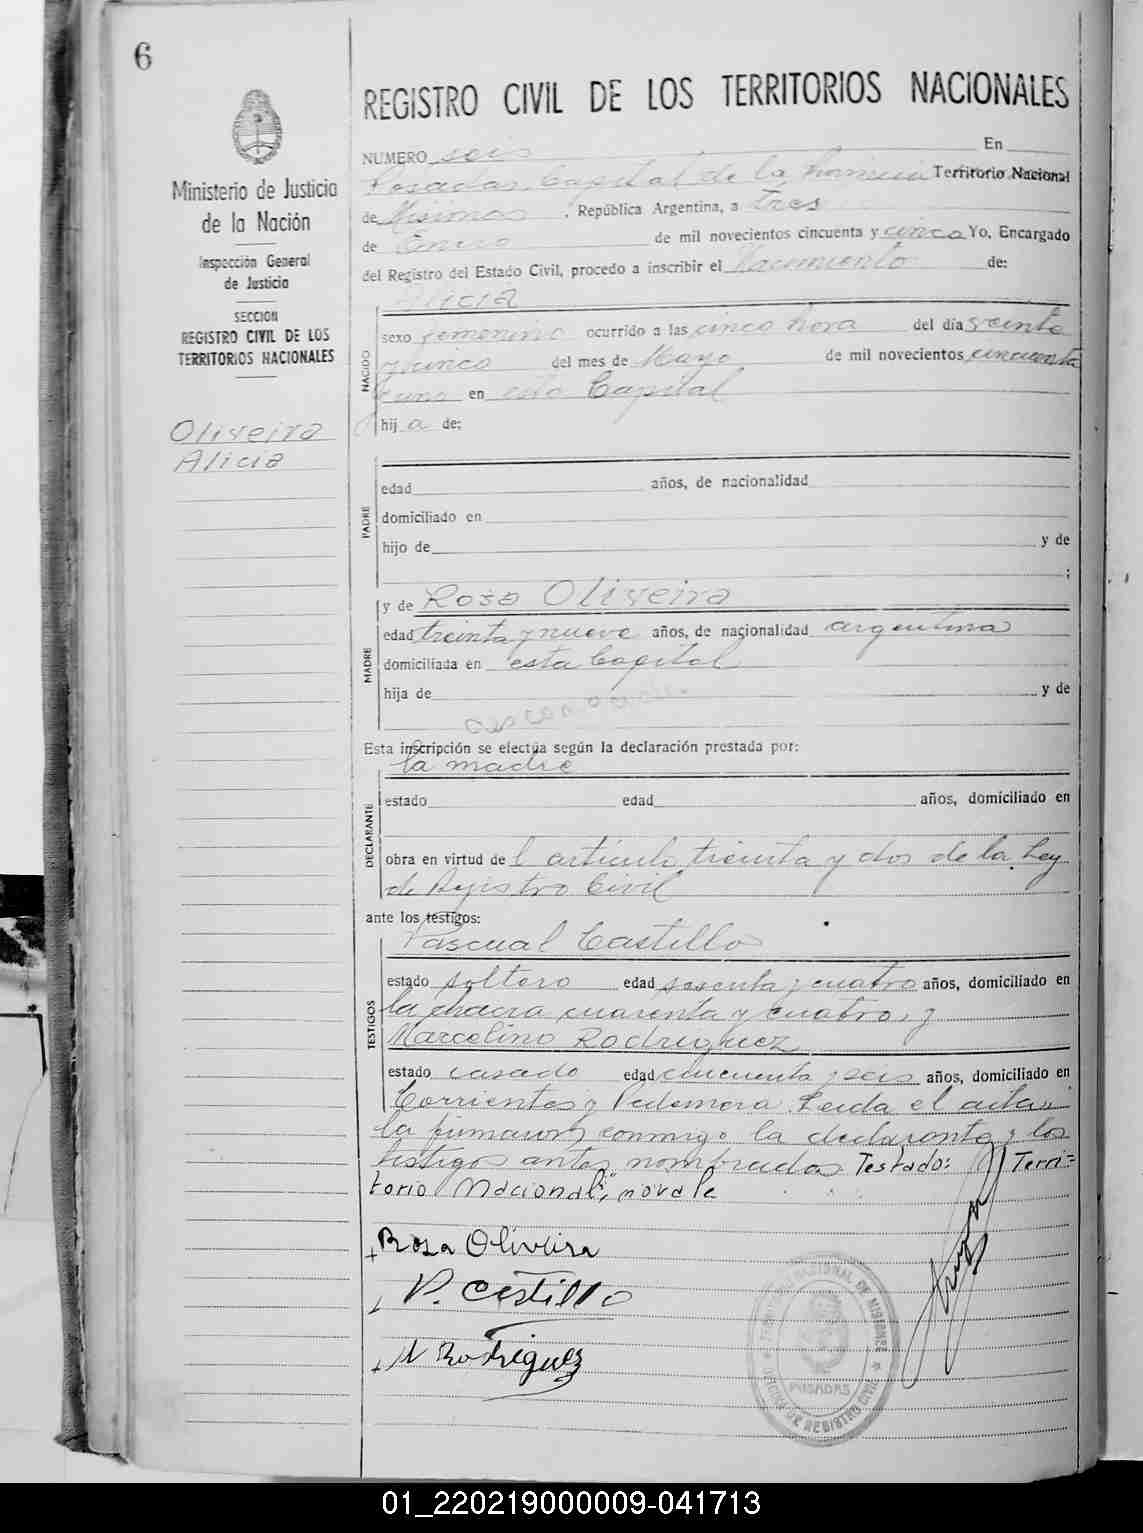 6
REGISTRO CIVIL DE LOS TERRITORIOS NACIONALES
Ministerio de Justicia
de la Nación
Inspección General
de Justicia
SECCIÓN
REGISTRO CIVIL DE LOS
TERRITORIOS NACIONALES
Oliveira
Alicia
NUMERO seis En
Posadas, Capital de la Provincia Territorio Nacional
de Misiones, República Argentina, a tres
de Enero de mil novecientos cincuenta y cinco Yo, Encargado
del Registro del Estado Civil, procedo a inscribir el Nacimiento de:
Alicia
NACIDO
sexo femenino ocurrido a las cinco hora del día veinte
y cinco del mes de Mayo de mil novecientos cincuenta
y uno en esta Capital
hij a de:
PADRE
edad años, de nacionalidad
domiciliado en
hijo de y de
;
MADRE
y de Rosa Oliveira
edad treinta y nueve años, de nacionalidad argentina
domiciliada en esta Capital
hija de y de
Esta inscripción se efectúa según la declaración prestada por:
la madre
DECLARANTE
estado edad años, domiciliado en
obra en virtud de l artículo treinta y dos de la Ley
de Registro Civil
ante los testigos:
Pascual Castillo
TESTIGOS
estado soltero edad sesenta y cuatro años, domiciliado en
la chacra cuarenta y cuatro, y
Marcelino Rodriguez
estado casado edad cincuenta y seis años, domiciliado en
Corrientes y Pedernera. Leida el acta
la firmaron conmigo la declarante y los
testigos antes nombrados Testado: Terri-
torio Nacional, no vale
Rosa Oliveira
P. Castillo
M Rodriguez
NACIONAL DE MISIONES
POSADAS
DE REGISTRO CIVIL
01_220219000009-041713